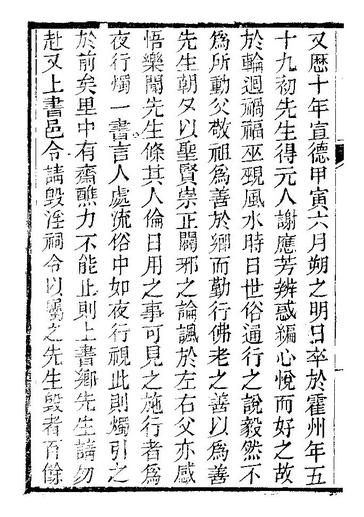 又歷十年宣德甲寅六月朔之明日卒於霍州年五
十九初先生得元人謝應芳辨惑編心悅而好之故
於輪迴禍福巫覡風水時日世俗通行之說毅然不
為所動父敬祖為善於鄉而勤行佛老之善以為善
先生朝夕以聖賢崇正闢邪之論諷於左右父亦感
悟樂聞先生條其人倫日用之事可見之施行者為
夜行燭一書言人處流俗中如夜行視此則燭引之
於前矣里中有齋醮力不能止則上書鄉先生請勿
赴又上書邑令請毀淫祠令以屬之先生毀者百餘